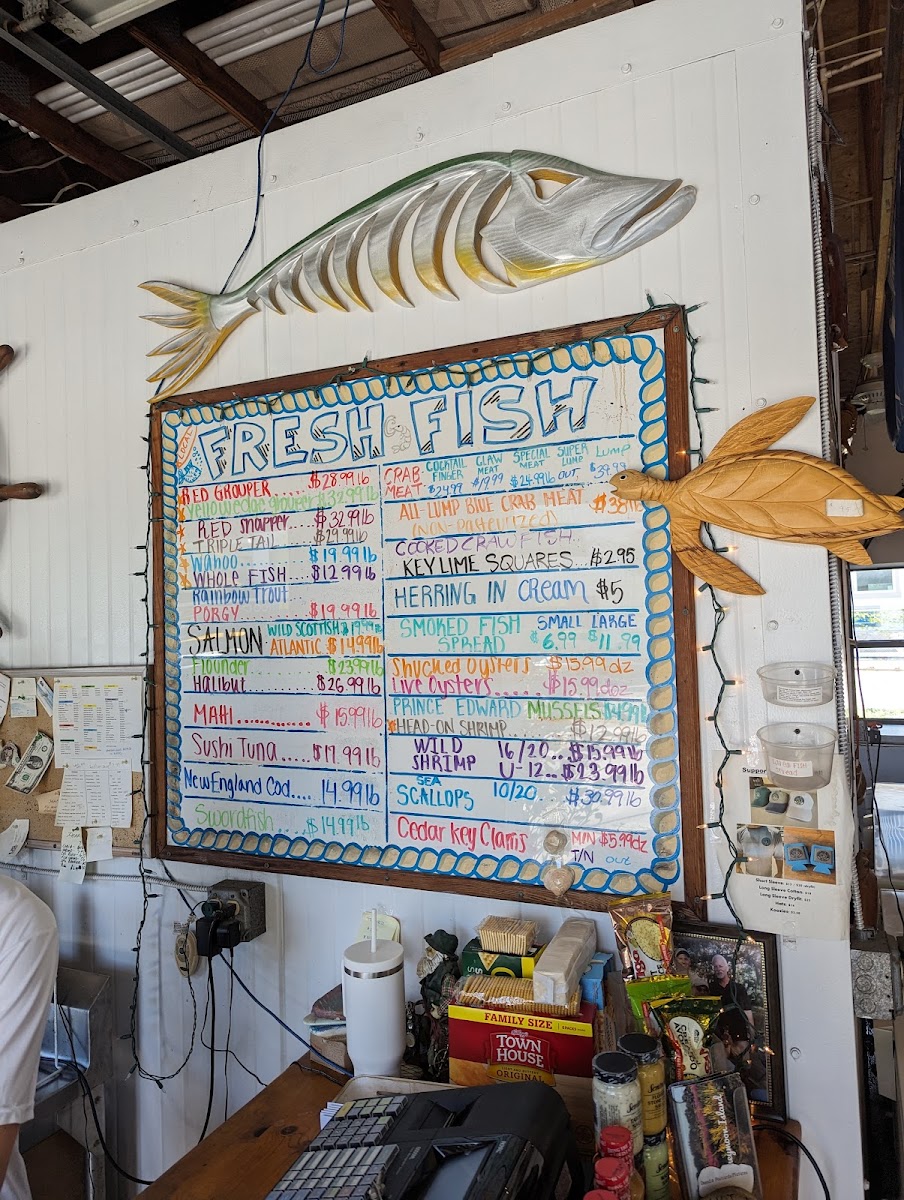 LOCAL
FRESH FISH
RED GROUPER..... $28.99lb
Yellowedge grouper $32.99lb
RED snapper.... $32.99lb
TRIPLETAIL.... $29.99lb
Wahoo...... $19.99lb
WHOLE FISH.... $12.99lb
Rainbow Trout..
PORGY $19.99lb
SALMON WILD SCOTTISH
ATLANTIC $14.99lb
Flounder $23.99lb
Halibut........... $26.99lb
MAHI........... $15.99lb
Sushi Tuna.... $17.99lb
New England Cod.... 14.99lb
Swordfish.... $14.99lb
CRAB MEAT
COCKTAIL FINGER $24.99
CLAW MEAT $19.99
SPECIAL MEAT $24.99lb
SUPER LUMP OUT
LUMP $39.99
ALL-LUMP BLUE CRAB MEAT
(NON-Pasteurized)
COOKED CRAWFISH..
KEY LIME SQUARES... $2.95
HERRING IN CREAM $5
SMOKED FISH SPREAD
SMALL LARGE
6.99 $11.99
Shucked oysters $15.99 dz
Live Oysters...... $15.99 doz
PRINCE EDWARD MUSSELS
HEAD-ON SHRIMP... $12.99lb
WILD SHRIMP
16/20... $15.99lb
U-12... $23.99lb
SEA SCALLOPS 10/20... $30.99lb
Cedar Key Clams
MIN $5.99dz
T/N out
Support
FAMILY SIZE
TOWN HOUSE
ORIGINAL